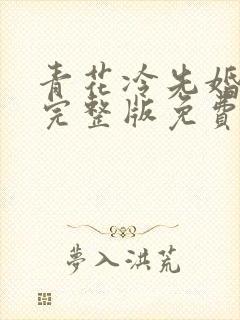 青花冷先婚
完整版免費
夢入洪荒